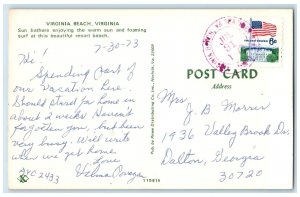 VIRGINIA BEACH, VIRGINIA
Sun bathers enjoying the warm sun and foaming
surf at this beautiful resort beach.
7-30-73
Hi!
Spending part of
our Vacation here.
Should start for home in
about 2 weeks. Haven't
forgotten you, but been
very busy. Will write
when we get home.
Love
Velma
POST CARD
Address
Mrs J B Morris
1936 Valley Brook Dr.
Dalton, Georgia
30720
6c